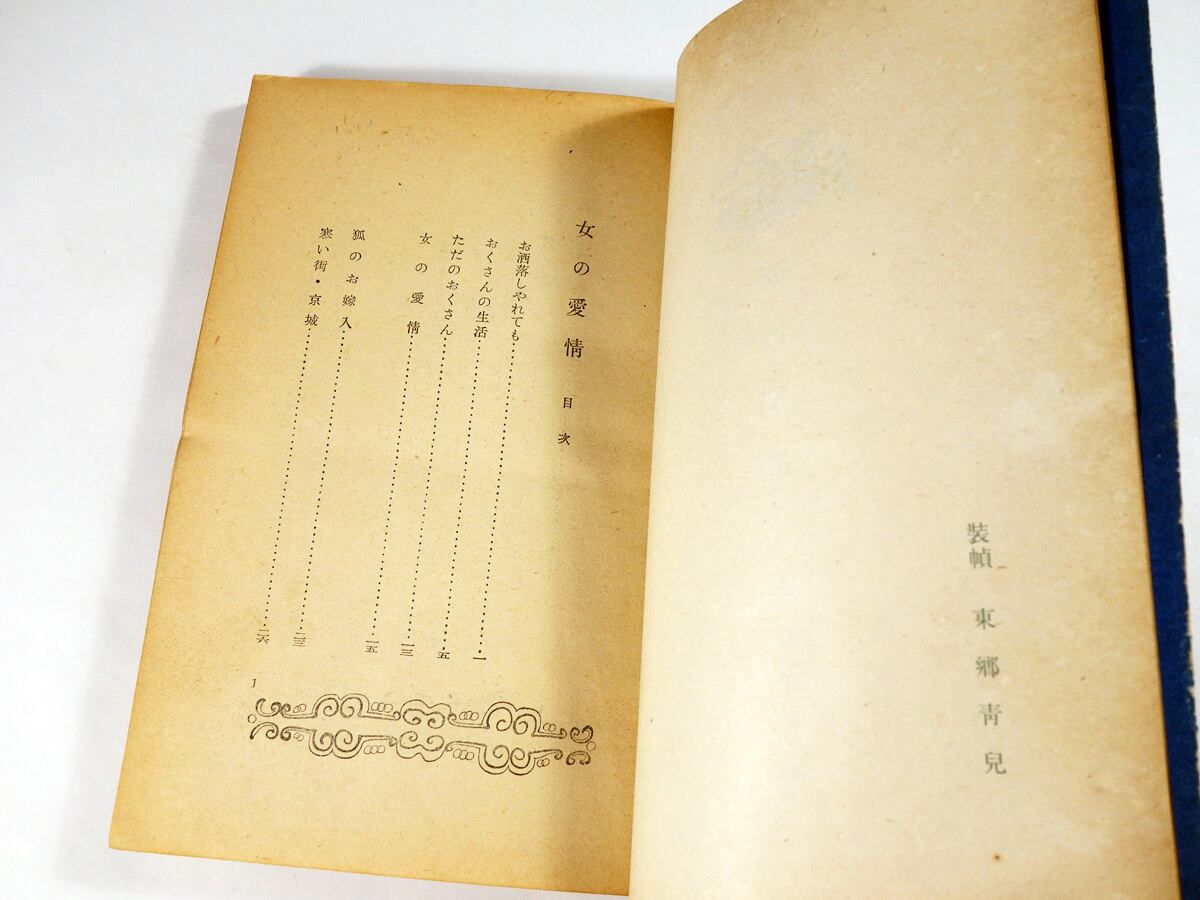 裝幀 東鄕靑兒
女の愛情 目次
お洒落しやれても……一
おくさんの生活……五
ただのおくさん……一三
女の愛情……一五
狐のお嫁入……二三
寒い街・京城……二六
1